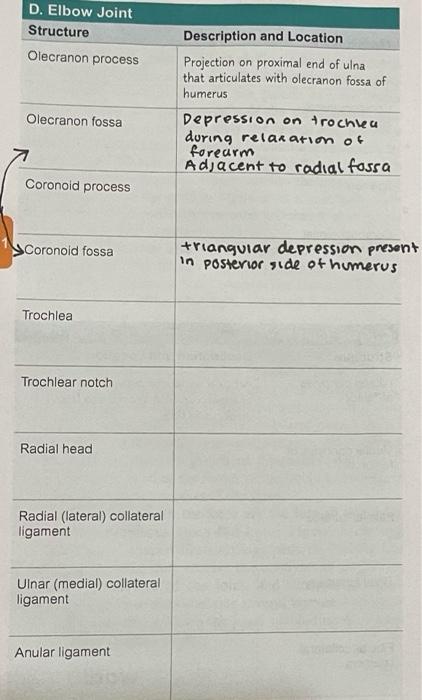 D. Elbow Joint
Structure
Description and Location
Olecranon process
Projection on proximal end of ulna
that articulates with olecranon fossa of
humerus
Olecranon fossa
Depression on trochlea
during relaxation of
forearm
Adjacent to radial fossa
Coronoid process
1
Coronoid fossa
triangular depression present
in posterior side of humerus
Trochlea
Trochlear notch
Radial head
Radial (lateral) collateral
ligament
Ulnar (medial) collateral
ligament
Anular ligament